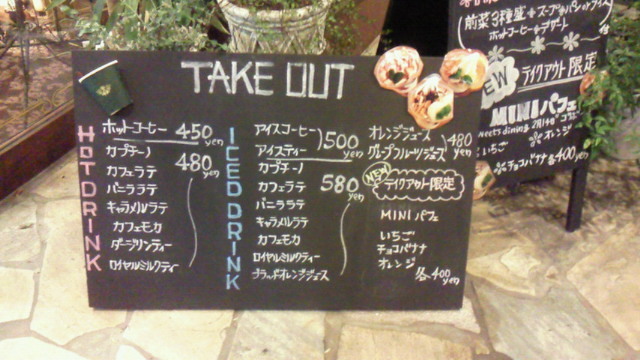 TAKE OUT
HOT DRINK
ホットコーヒー 450 yen
カプチーノ 480 yen
カフェラテ
バニララテ
キャラメルラテ
カフェモカ
ダージリンティー
ロイヤルミルクティー
ICED DRINK
アイスコーヒー 500 yen
アイスティー
カプチーノ
カフェラテ 580 yen
バニララテ
キャラメルラテ
カフェモカ
ロイヤルミルクティー
ブラッドオレンジジュース
オレンジジュース 480 yen
グレープフルーツジュース
NEW
テイクアウト限定
MINI パフェ
いちご
チョコバナナ
オレンジ
各400 yen
(前菜3種盛+スープorパンorライス
ホットコーヒー&デザート
テイクアウト限定
MINIパフェ
meets dining
いちご
オレンジ
チョコバナナ
各400yen